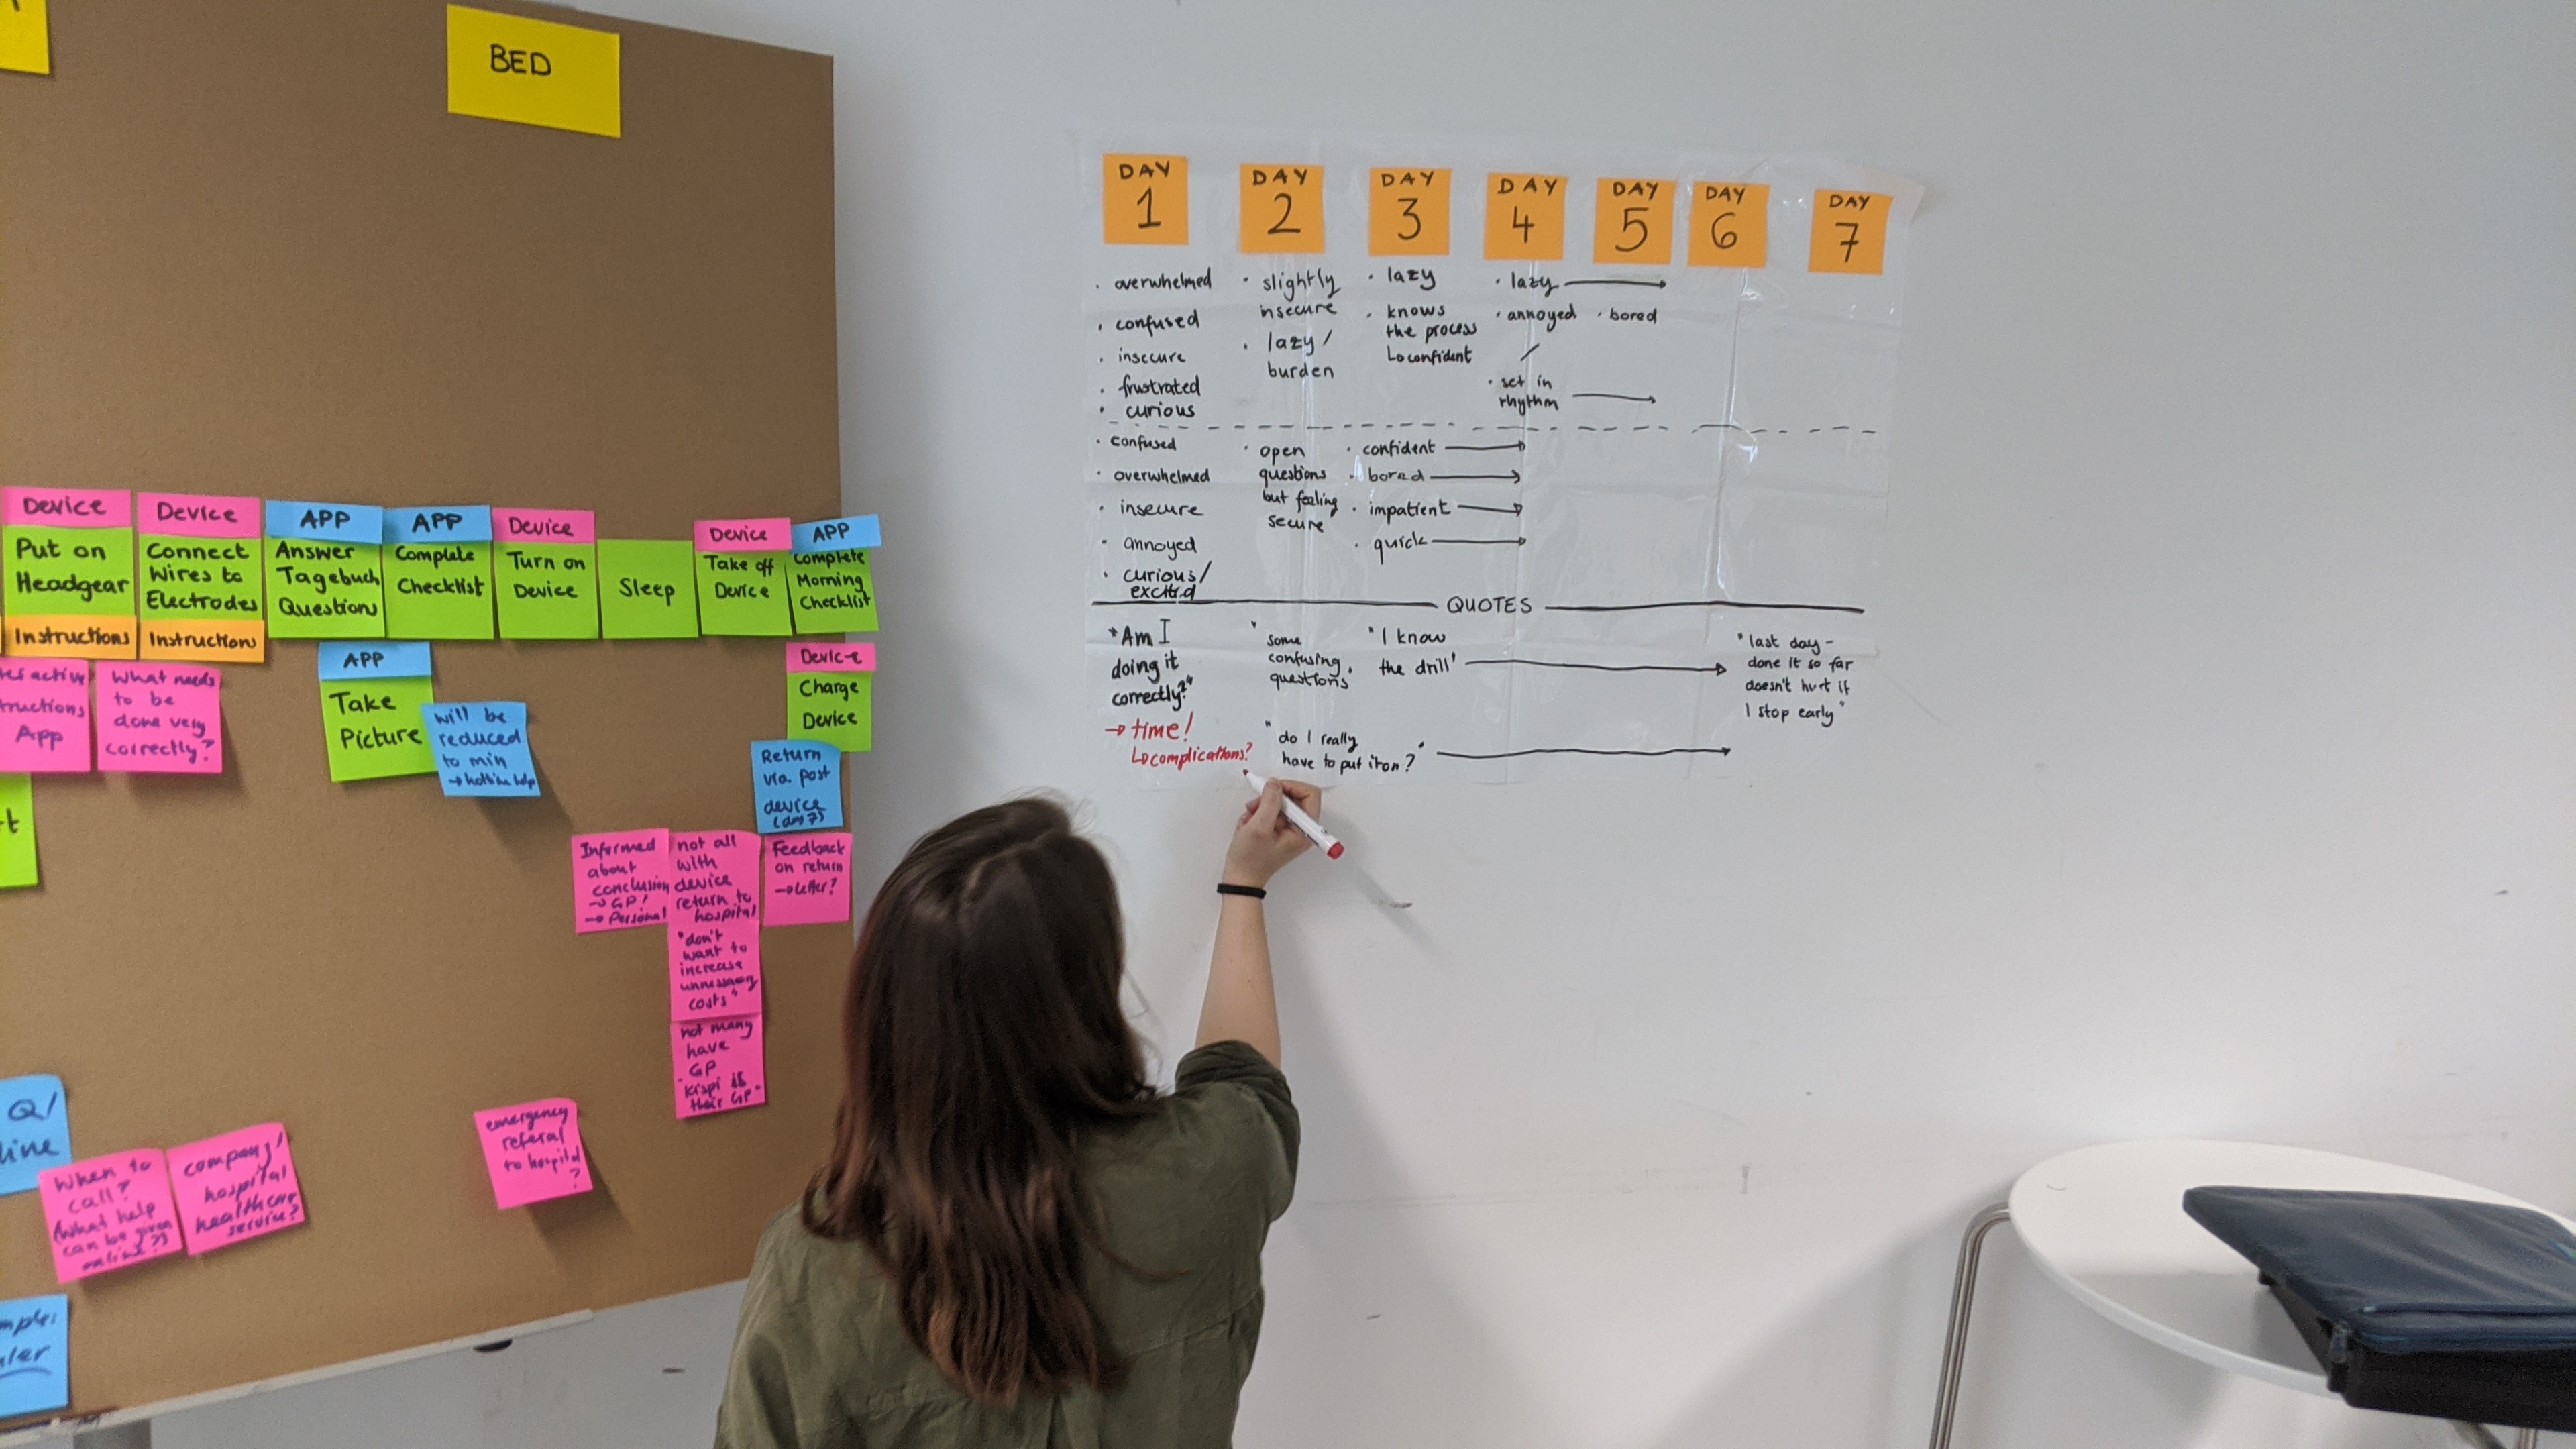 BED
Device
Put on
Headgear
Instructions
Device
Connect
Wires to
Electrodes
Instructions
APP
Answer
Tagebuch
Questions
APP
Complete
Checklist
Device
Turn on
Device
Sleep
Device
Take off
Device
APP
Complete
Morning
Checklist
App
What needs
to be
done very
correctly?
APP
Take
Picture
will be
reduced
to min
→ hotline help
Device
Charge
Device
Return
via post
device
(day 7)
Informed
about
conclusion
→ GP!
→ Personal
not all
with
device
return to
hospital
Feedback
on return
→ letter?
"don't
want to
increase
unnessary
costs"
not many
have
GP
"Kispi is
their GP"
emergency
referal
to hospital
?
Q/
line
When to
call?
(What help
can be given
online??)
company/
hospital
healthcare
service?
DAY
1
DAY
2
DAY
3
DAY
4
DAY
5
DAY
6
DAY
7
· overwhelmed
· confused
· insecure
· frustrated
· curious
· slightly
insecure
· lazy/
burden
· lazy
· knows
the process
↳ confident
· lazy →
· annoyed
/
· set in
rhythm →
· bored
· confused
· overwhelmed
· insecure
· annoyed
· curious/
excited
· open
questions
but feeling
secure
· confident →
· bored →
· impatient →
· quick →
QUOTES
"Am I
doing it
correctly?"
→ time!
↳ complications?
"some
confusing
questions"
"I know
the drill" →
"last day -
done it so far
doesn't hurt if
I stop early"
"do I really
have to put it on?" →